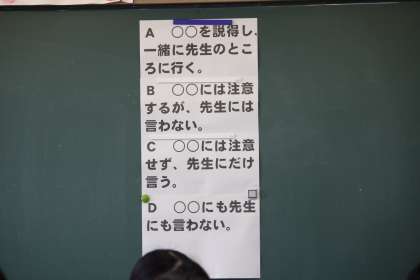 A　○○を説得し、
一緒に先生のとこ
ろに行く。
B　○○には注意
するが、先生には
言わない。
C　○○には注意
せず、先生にだけ
言う。
D　○○にも先生
にも言わない。